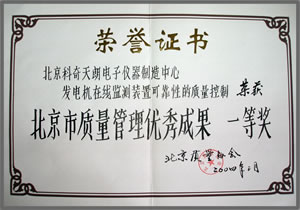 荣誉证书
北京科奇天朗电子仪器制造中心
发电机在线监测装置可靠性的质量控制 荣获
北京市质量管理优秀成果 一等奖
北京质量协会